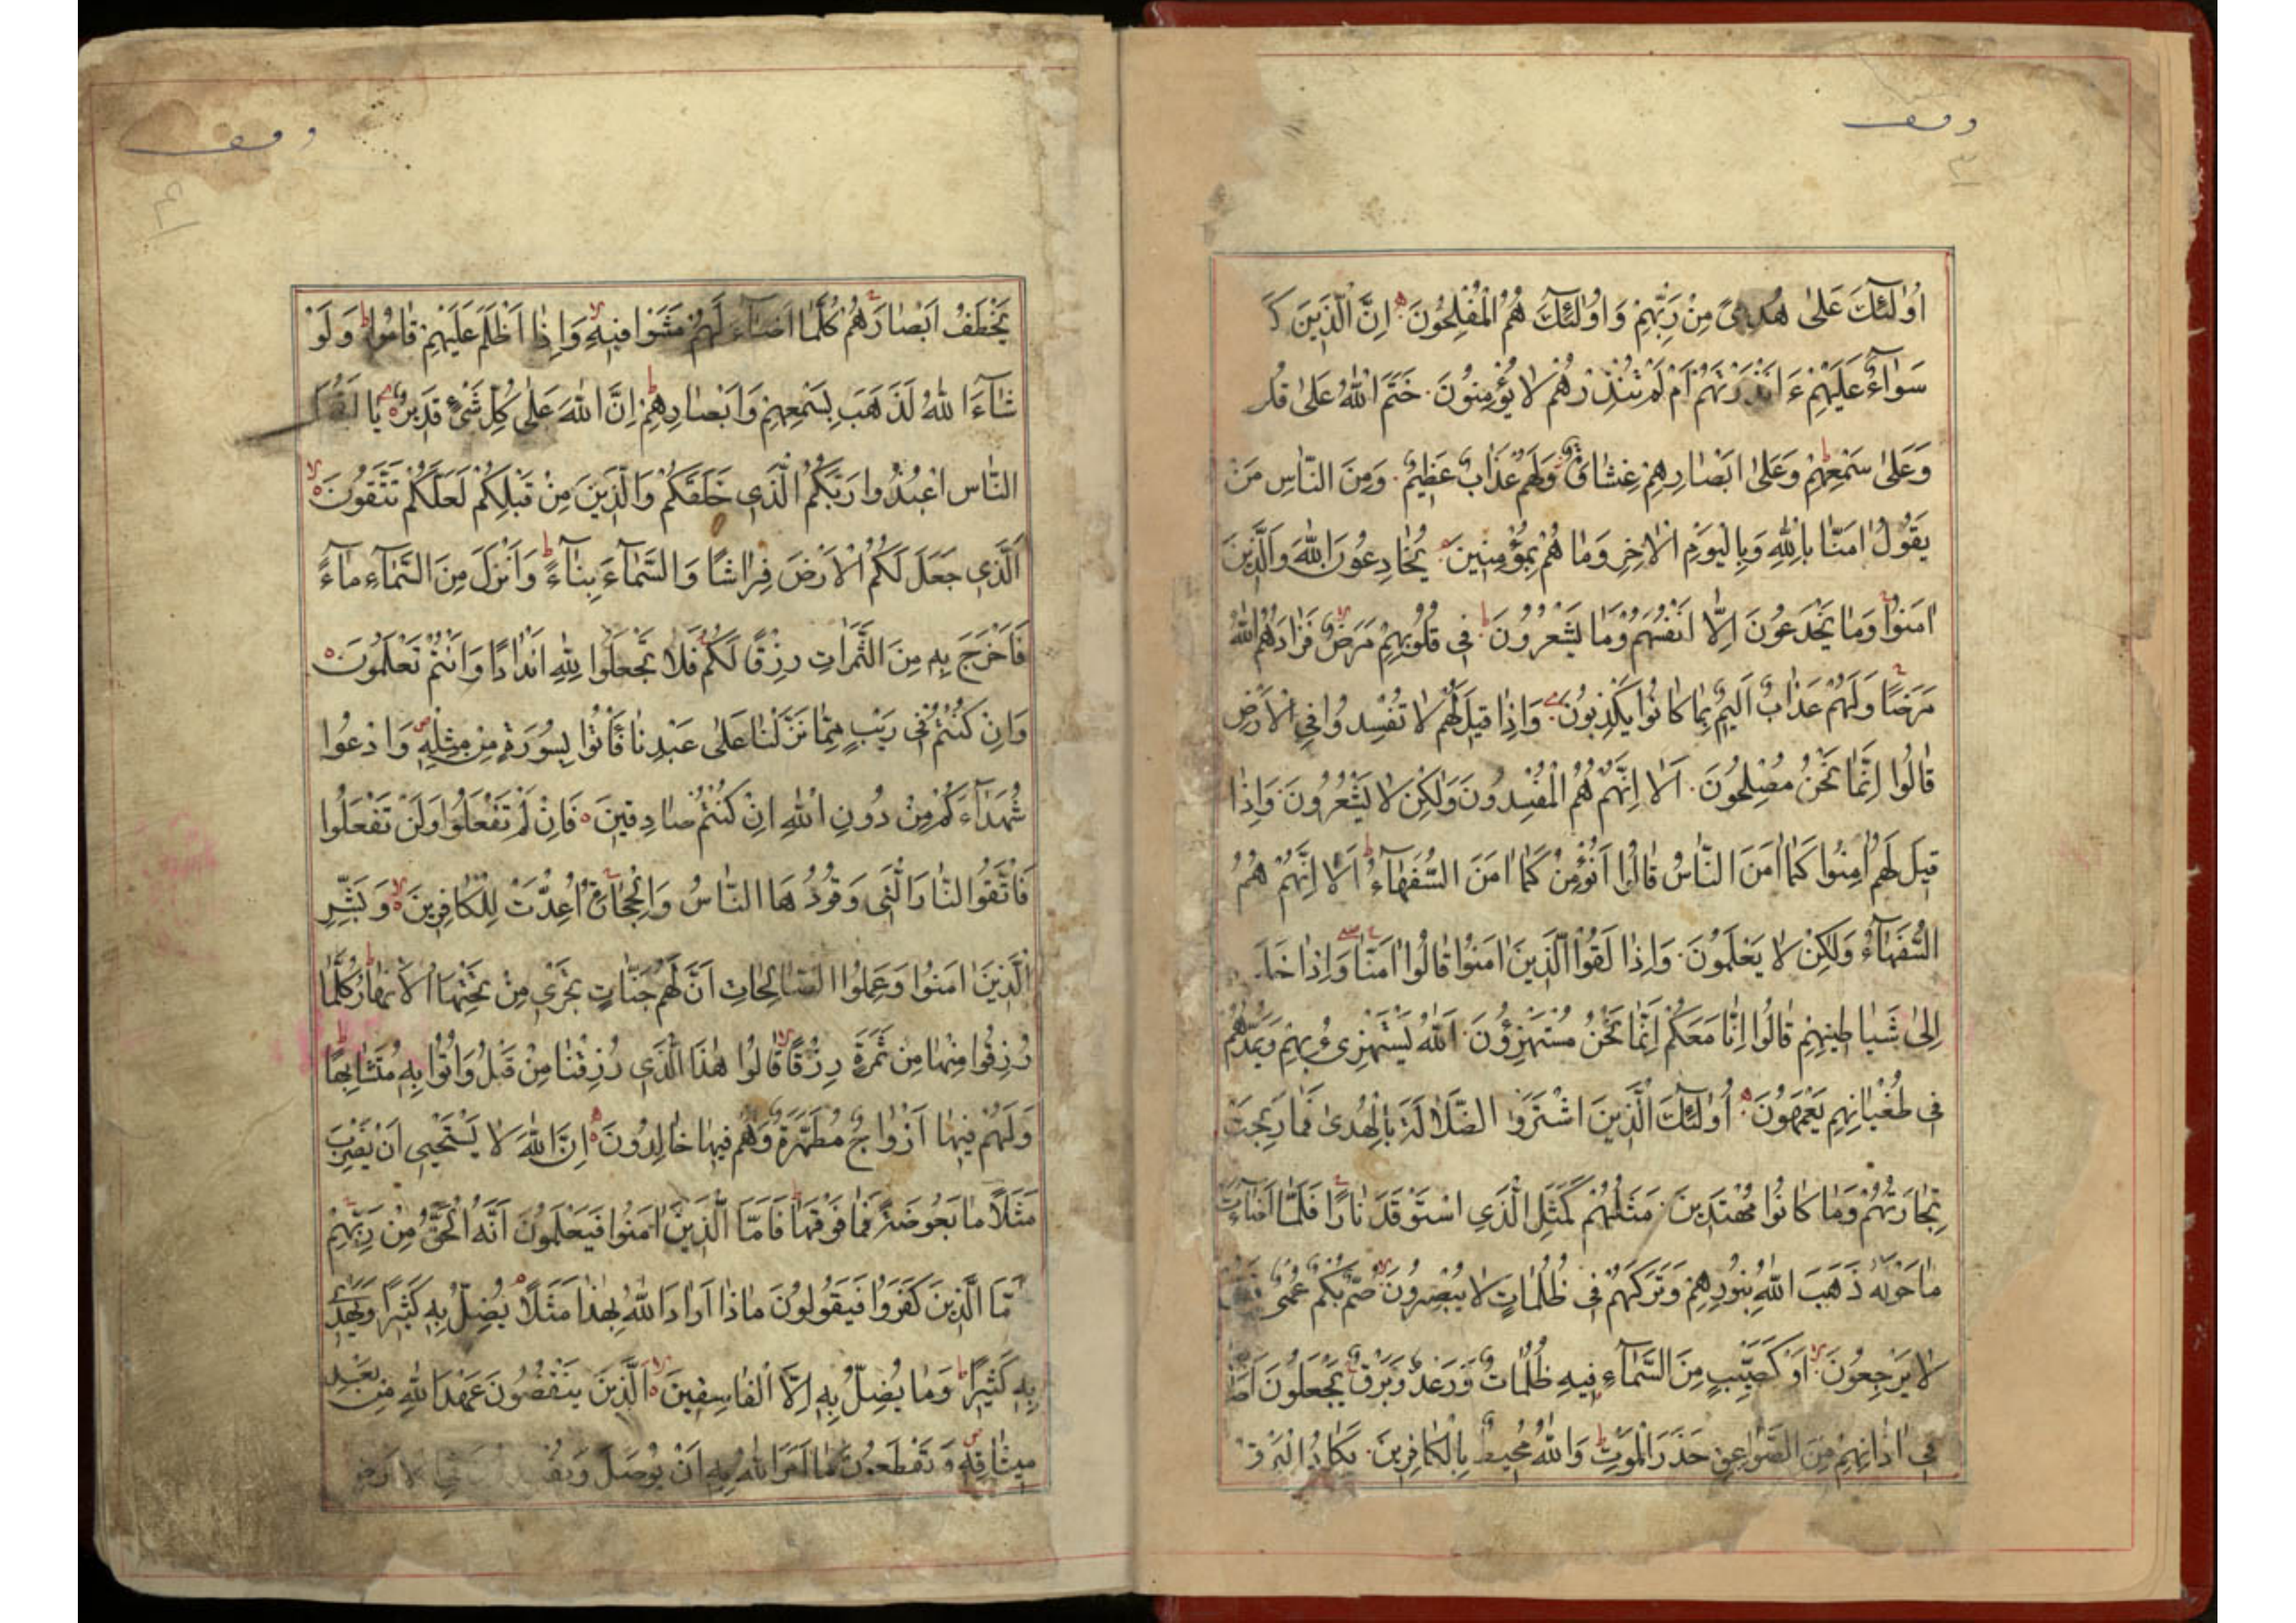 وقف
٣
اُولٰئِكَ عَلٰى هُدىً مِنْ رَبِّهِمْ وَاُولٰئِكَ هُمُ الْمُفْلِحُونَ اِنَّ الَّذِينَ كَ
سَوَاءٌ عَلَيْهِمْ ءَاَنْذَرْتَهُمْ اَمْ لَمْ تُنْذِرْهُمْ لَا يُؤْمِنُونَ خَتَمَ اللّٰهُ عَلٰى قُلُ
وَعَلٰى سَمْعِهِمْ وَعَلٰى اَبْصَارِهِمْ غِشَاوَةٌ وَلَهُمْ عَذَابٌ عَظِيمٌ وَمِنَ النَّاسِ مَنْ
يَقُولُ اٰمَنَّا بِاللّٰهِ وَبِالْيَوْمِ الْاٰخِرِ وَمَا هُمْ بِمُؤْمِنِينَ يُخَادِعُونَ اللّٰهَ وَالَّذِينَ
اٰمَنُوا وَمَا يَخْدَعُونَ اِلَّا اَنْفُسَهُمْ وَمَا يَشْعُرُونَ فِى قُلُوبِهِمْ مَرَضٌ فَزَادَهُمُ اللّٰهُ
مَرَضًا وَلَهُمْ عَذَابٌ اَلِيمٌ بِمَا كَانُوا يَكْذِبُونَ وَاِذَا قِيلَ لَهُمْ لَا تُفْسِدُوا فِى الْاَرْضِ
قَالُوا اِنَّمَا نَحْنُ مُصْلِحُونَ اَلَا اِنَّهُمْ هُمُ الْمُفْسِدُونَ وَلٰكِنْ لَا يَشْعُرُونَ وَاِذَا
قِيلَ لَهُمْ اٰمِنُوا كَمَا اٰمَنَ النَّاسُ قَالُوا اَنُؤْمِنُ كَمَا اٰمَنَ السُّفَهَاءُ اَلَا اِنَّهُمْ هُمُ
السُّفَهَاءُ وَلٰكِنْ لَا يَعْلَمُونَ وَاِذَا لَقُوا الَّذِينَ اٰمَنُوا قَالُوا اٰمَنَّا وَاِذَا خَلَ
اِلٰى شَيَاطِينِهِمْ قَالُوا اِنَّا مَعَكُمْ اِنَّمَا نَحْنُ مُسْتَهْزِؤُنَ اَللّٰهُ يَسْتَهْزِىءُ بِهِمْ وَيَمُدُّهُمْ
فِى طُغْيَانِهِمْ يَعْمَهُونَ اُولٰئِكَ الَّذِينَ اشْتَرَوُا الضَّلَالَةَ بِالْهُدٰى فَمَا رَبِحَتْ
تِجَارَتُهُمْ وَمَا كَانُوا مُهْتَدِينَ مَثَلُهُمْ كَمَثَلِ الَّذِى اسْتَوْقَدَ نَارًا فَلَمَّا اَضَاءَتْ
مَا حَوْلَهُ ذَهَبَ اللّٰهُ بِنُورِهِمْ وَتَرَكَهُمْ فِى ظُلُمَاتٍ لَا يُبْصِرُونَ صُمٌّ بُكْمٌ عُمْىٌ فَهُمْ
لَا يَرْجِعُونَ اَوْ كَصَيِّبٍ مِنَ السَّمَاءِ فِيهِ ظُلُمَاتٌ وَرَعْدٌ وَبَرْقٌ يَجْعَلُونَ اَصَا
فِى اٰذَانِهِمْ مِنَ الصَّوَاعِقِ حَذَرَ الْمَوْتِ وَاللّٰهُ مُحِيطٌ بِالْكَافِرِينَ يَكَادُ الْبَرْقُ
وقف
٤
يَخْطَفُ اَبْصَارَهُمْ كُلَّمَا اَضَاءَ لَهُمْ مَشَوْا فِيهِ وَاِذَا اَظْلَمَ عَلَيْهِمْ قَامُوا وَلَوْ
شَاءَ اللّٰهُ لَذَهَبَ بِسَمْعِهِمْ وَاَبْصَارِهِمْ اِنَّ اللّٰهَ عَلٰى كُلِّ شَىْءٍ قَدِيرٌ يَا اَيُّهَا
النَّاسُ اعْبُدُوا رَبَّكُمُ الَّذِى خَلَقَكُمْ وَالَّذِينَ مِنْ قَبْلِكُمْ لَعَلَّكُمْ تَتَّقُونَ
اَلَّذِى جَعَلَ لَكُمُ الْاَرْضَ فِرَاشًا وَالسَّمَاءَ بِنَاءً وَاَنْزَلَ مِنَ السَّمَاءِ مَاءً
فَاَخْرَجَ بِهِ مِنَ الثَّمَرَاتِ رِزْقًا لَكُمْ فَلَا تَجْعَلُوا لِلّٰهِ اَنْدَادًا وَاَنْتُمْ تَعْلَمُونَ
وَاِنْ كُنْتُمْ فِى رَيْبٍ مِمَّا نَزَّلْنَا عَلٰى عَبْدِنَا فَأْتُوا بِسُورَةٍ مِنْ مِثْلِهِ وَادْعُوا
شُهَدَاءَكُمْ مِنْ دُونِ اللّٰهِ اِنْ كُنْتُمْ صَادِقِينَ فَاِنْ لَمْ تَفْعَلُوا وَلَنْ تَفْعَلُوا
فَاتَّقُوا النَّارَ الَّتِى وَقُودُهَا النَّاسُ وَالْحِجَارَةُ اُعِدَّتْ لِلْكَافِرِينَ وَبَشِّرِ
الَّذِينَ اٰمَنُوا وَعَمِلُوا الصَّالِحَاتِ اَنَّ لَهُمْ جَنَّاتٍ تَجْرِى مِنْ تَحْتِهَا الْاَنْهَارُ كُلَّمَا
رُزِقُوا مِنْهَا مِنْ ثَمَرَةٍ رِزْقًا قَالُوا هٰذَا الَّذِى رُزِقْنَا مِنْ قَبْلُ وَاُتُوا بِهِ مُتَشَابِهًا
وَلَهُمْ فِيهَا اَزْوَاجٌ مُطَهَّرَةٌ وَهُمْ فِيهَا خَالِدُونَ اِنَّ اللّٰهَ لَا يَسْتَحْيِى اَنْ يَضْرِبَ
مَثَلًا مَا بَعُوضَةً فَمَا فَوْقَهَا فَاَمَّا الَّذِينَ اٰمَنُوا فَيَعْلَمُونَ اَنَّهُ الْحَقُّ مِنْ رَبِّهِمْ
مَّا الَّذِينَ كَفَرُوا فَيَقُولُونَ مَاذَا اَرَادَ اللّٰهُ بِهٰذَا مَثَلًا يُضِلُّ بِهِ كَثِيرًا وَيَهْدِى
بِهِ كَثِيرًا وَمَا يُضِلُّ بِهِ اِلَّا الْفَاسِقِينَ اَلَّذِينَ يَنْقُضُونَ عَهْدَ اللّٰهِ مِنْ بَعْدِ
مِيثَاقِهِ وَيَقْطَعُونَ مَا اَمَرَ اللّٰهُ بِهِ اَنْ يُوصَلَ وَيُفْسِدُونَ فِى الْاَرْضِ